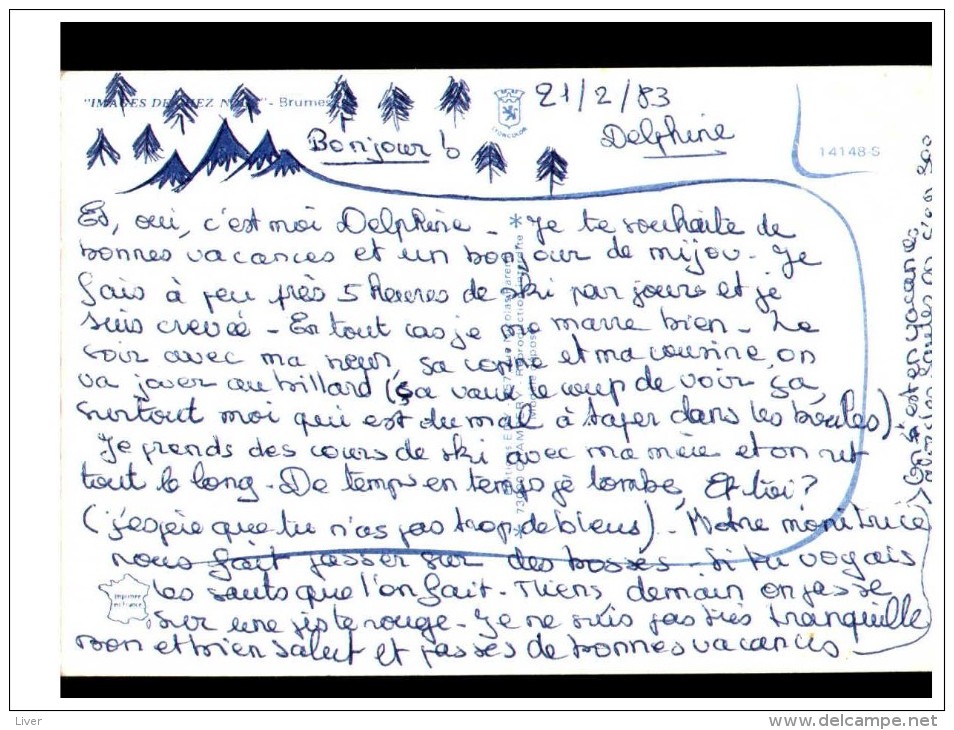 "IMAGES DE CHEZ NOUS" - Brumes
21/2/83
LYONCOLOR
Bonjour
Delphine
14148-S
Et, oui, c'est moi Delphine - Je te souhaite de
bonnes vacances et un bonjour de mijou - Je
fais à peu près 5 heures de ski par jours et je
suis crevée - En tout cas je me marre bien - Le
soir avec ma sœur, sa copine et ma cousine on
va jouer au billard (ça vaux le coup de voir ça,
surtout moi qui est du mal à taper dans les boules)
Je prends des cours de ski avec ma mère et on rit
tout le long - De temps en temps je tombe, Et toi?
(j'espère que tu n'as pas trop de bleus) - Notre monitrice
nous fait passer sur des bosses - Si tu voyais
les sauts que l'on fait - Tiens demain on passe
sur une piste rouge - Je ne suis pas très tranquille
Bon et bien salut et passes de bonnes vacances
on s'est en vacances
Imprimé
en France
Liver
www.delcampe.net